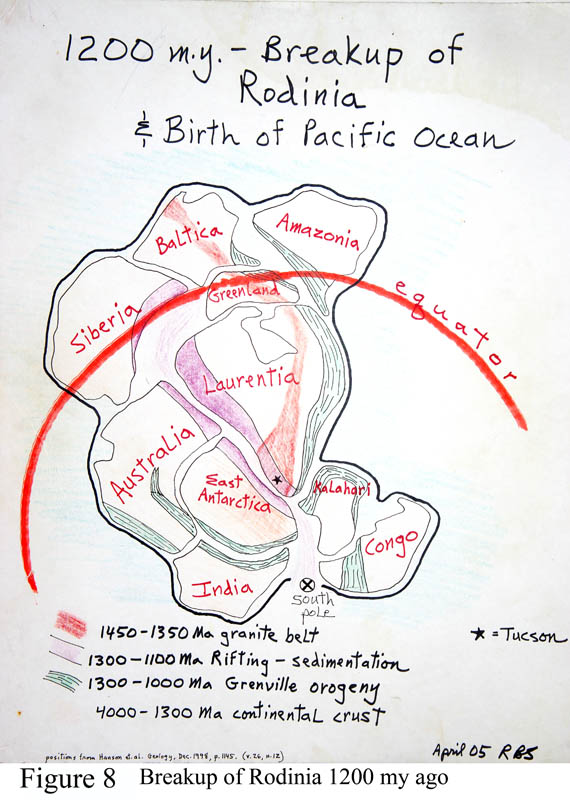 1200 m.y. - Breakup of
Rodinia
& Birth of Pacific Ocean
Baltica
Amazonia
equator
Greenland
Siberia
Laurentia
Australia
East
Antarctica
Kalahari
Congo
India
South
pole
1450-1350 Ma granite belt
★ = Tucson
1300-1100 Ma Rifting - sedimentation
1300-1000 Ma Grenville orogeny
4000-1300 Ma continental crust
positions from Hanson et. al. Geology, Dec. 1998, p. 1145. (v. 26, n. 12)
April 05 RBS
Figure 8 Breakup of Rodinia 1200 my ago